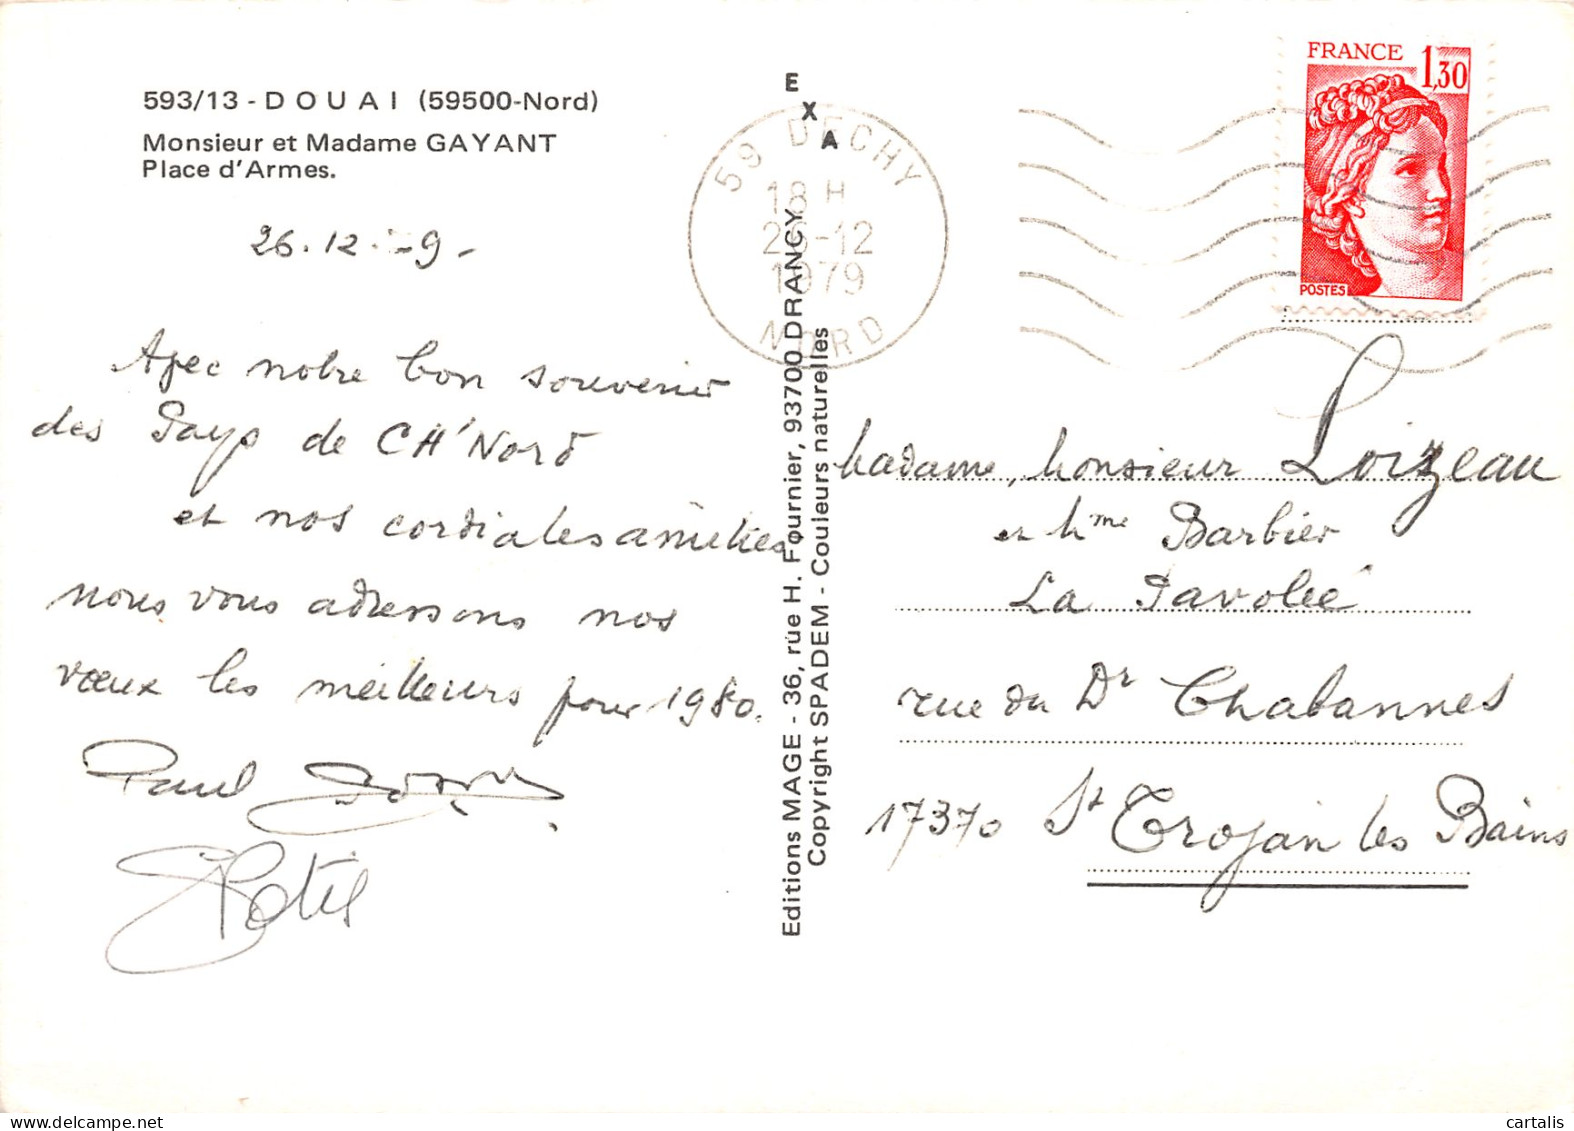 593/13 - DOUAI (59500-Nord)
Monsieur et Madame GAYANT
Place d'Armes.
26.12. -9-
Avec notre bon souvenir
des Pays de CH'Nord
et nos cordiales amitiés
nous vous adressons nos
vœux les meilleurs pour 1980.
Paul
EXA
Editions MAGE - 36, rue H. Fournier, 93700 DRANCY
Copyright SPADEM - Couleurs naturelles
59 DECHY
18 H
26-12
1979
NORD
FRANCE 1,30
POSTES
Madame, Monsieur Loizeau
et Mme Barbier
La
rue du Dr Chabannes
17370 St Trojan les Bains
cartalis